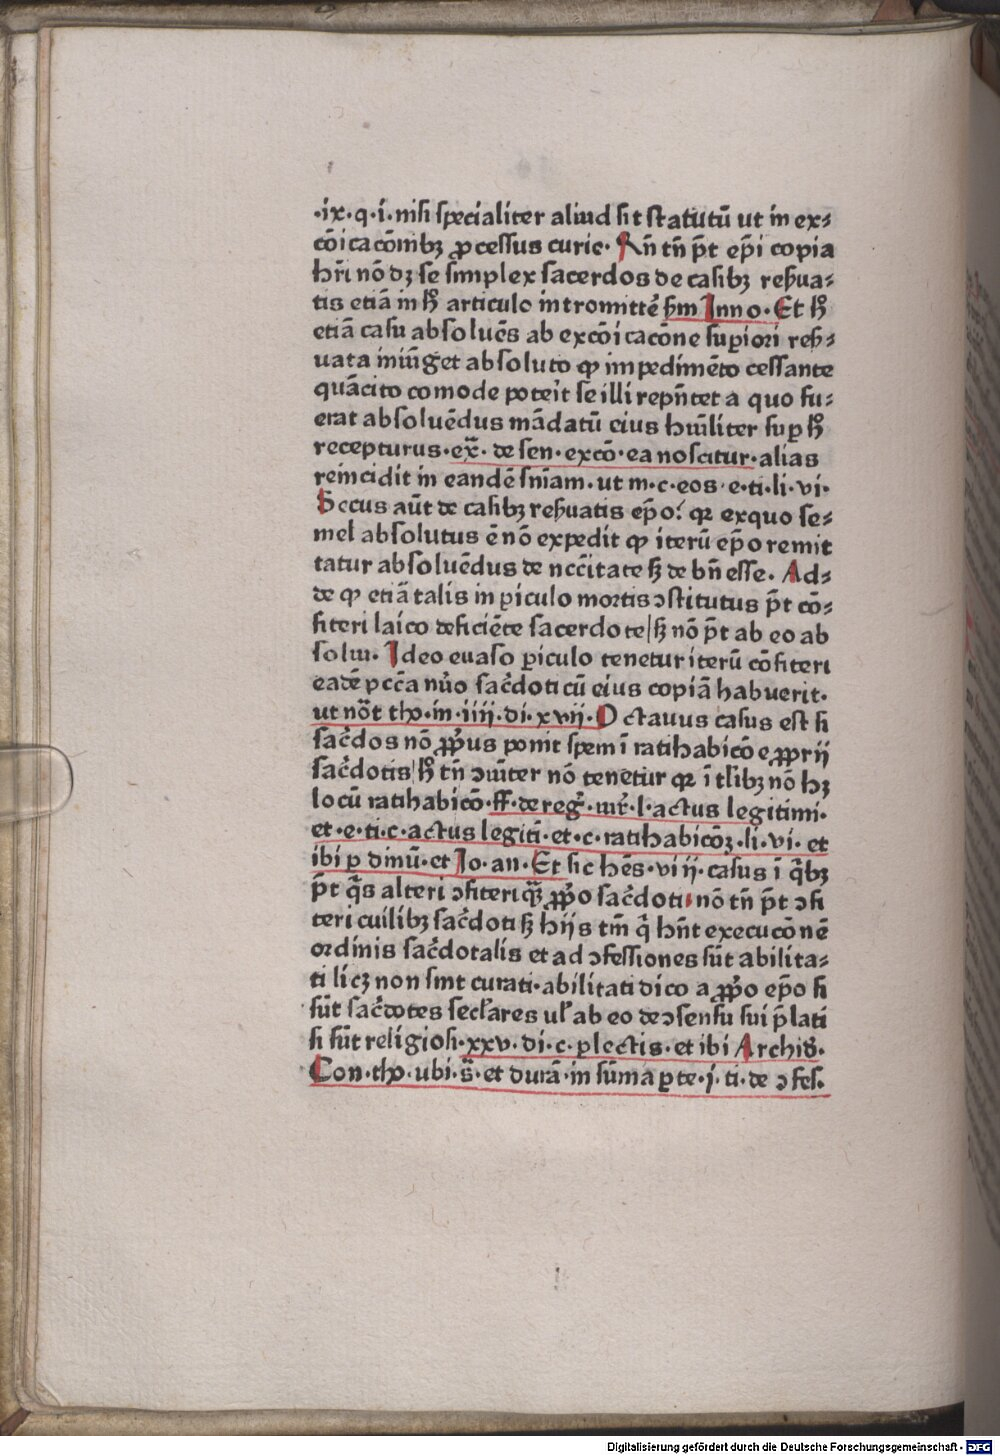 ·ix·q·i·nisi specialiter aliud sit statutū ut in ex⸗
cōicacōnibꝫ ꝓcessus curie· An̄ tn̄ p̄t ep̄i copia
hr̄i nō dꝫ se simplex sacerdos de casibꝫ reẜua⸗
tis etiā in h̄ articulo intromittē ẜm Inno· Et h̄
etiā casu absoluēs ab excōicacōne suꝑiori reẜ⸗
uata iniūget absoluto ꝙ impedimēto cessante
quācito comode poteit se illi repn̄tet a quo fu⸗
erat absoluēdus mādatū eius hūiliter suꝑ h̄
recepturus·ex̄· de sen·excō·ea noscitur·alias
reincidit in eandē sn̄iam·ut m·c·eos·e·ti·li·vi·
Secus aūt de casibꝫ reẜuatis ep̄o: qꝛ exquo se⸗
mel absolutus ē nō expedit ꝙ iterū ep̄o remit
tatur absoluēdus de nccītate sꝫ de bn̄ esse· Ad⸗
de ꝙ etiā talis in ꝑiculo mortis ↄstitutus p̄t cō⸗
fiteri laico deficiēte sacerdote/ sꝫ nō p̄t ab eo ab
solui· Ideo euaso ꝑiculo tenetur iterū cōfiteri
eadē pcc̄a nūo sac̄doti cū eius copiā habuerit·
ut nōt tho·in·iiij·di·xvij·Octauus casus est si
sac̄dos nō ꝓp̄us ponit spem ī ratihabicōe ꝓprij
sac̄dotis/ h̄ tn̄ ↄūiter nō tenetur qꝛ ī tlibꝫ nō hꝫ
locū ratihabicō·ff·de reḡ·iur̄·l·actus legitimi·
et·e·ti·c·actus legitī·et·c·ratihabicōꝫ·li·vi·et
ibi ꝑ dinū·et Jo·an·Et sic hēs·viij·casus ī q̄bꝫ
p̄t q̄s alteri ↄfiteri qꝫ̄ ꝓp̄o sac̄doti·nō tn̄ p̄t ↄfi
teri cuilibꝫ sac̄doti sꝫ hijs tm̄ q̄ hn̄t execucōnē
ordinis sac̄dotalis et ad ↄfessiones sūt abilita⸗
ti licꝫ non sint curati·abilitati dico a ꝓp̄o ep̄o si
sūt sac̄dotes secl̄ares ul̄ ab eo de ↄsensu sui p̄lati
si sūt religiosi·xxv·di·c·ꝑlectis·et ibi Archid̄·
Con·tho·ubi·s̄·et durā·in sūma ꝑte·j·ti·de ↄfes·
Digitalisierung gefördert durch die Deutsche Forschungsgemeinschaft - DFG